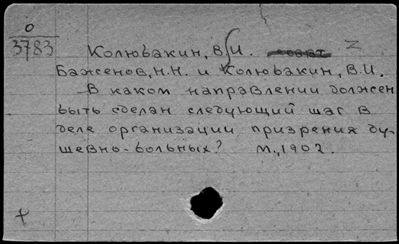 0
3783
Колювакин, В.И. Z
Баженов, Н.Н. и Колювакин, В.И.
В каком направлении должен
быть сделан следующий шаг в
деле организации призрения ду-
шевно-больных? М., 1902.
+